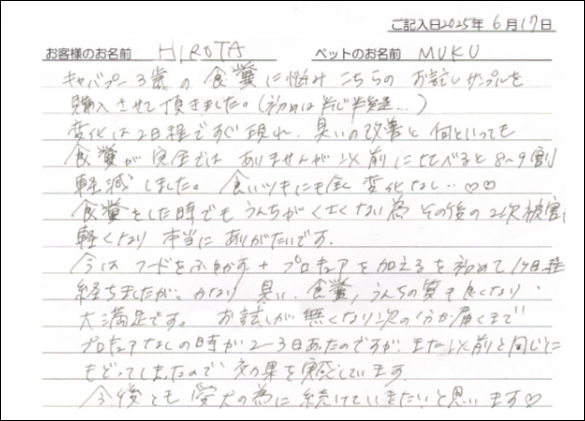 ご記入日2025年6月17日
お客様のお名前 HIROTA ペットのお名前 MUKU
キャバプー3歳の食糞に悩みこちらのお試しサンプルを
購入させて頂きました。(初めは半信半疑…)
変化は2日程ですぐ現れ、臭いの改善と何といっても
食糞が完全ではありませんが以前に比べると8〜9割
軽減しました。食いツキにも全く変化なし‥♡♡
食糞をした時でもうんちがくさくない為その後の2次被害も
軽くなり本当にありがたいです。
今はフードをふやかす+プロキュアを加えるを初めて19日程
経ちましたが、かなり臭い、食糞、うんちの質も良くなり
大満足です。お試しが無くなり次の分が届くまで
プロキュアなしの時が2〜3日あったのですが、また以前と同じに
もどってしまったので効果を実感しています。
今後とも愛犬の為に続けていきたいと思います♡